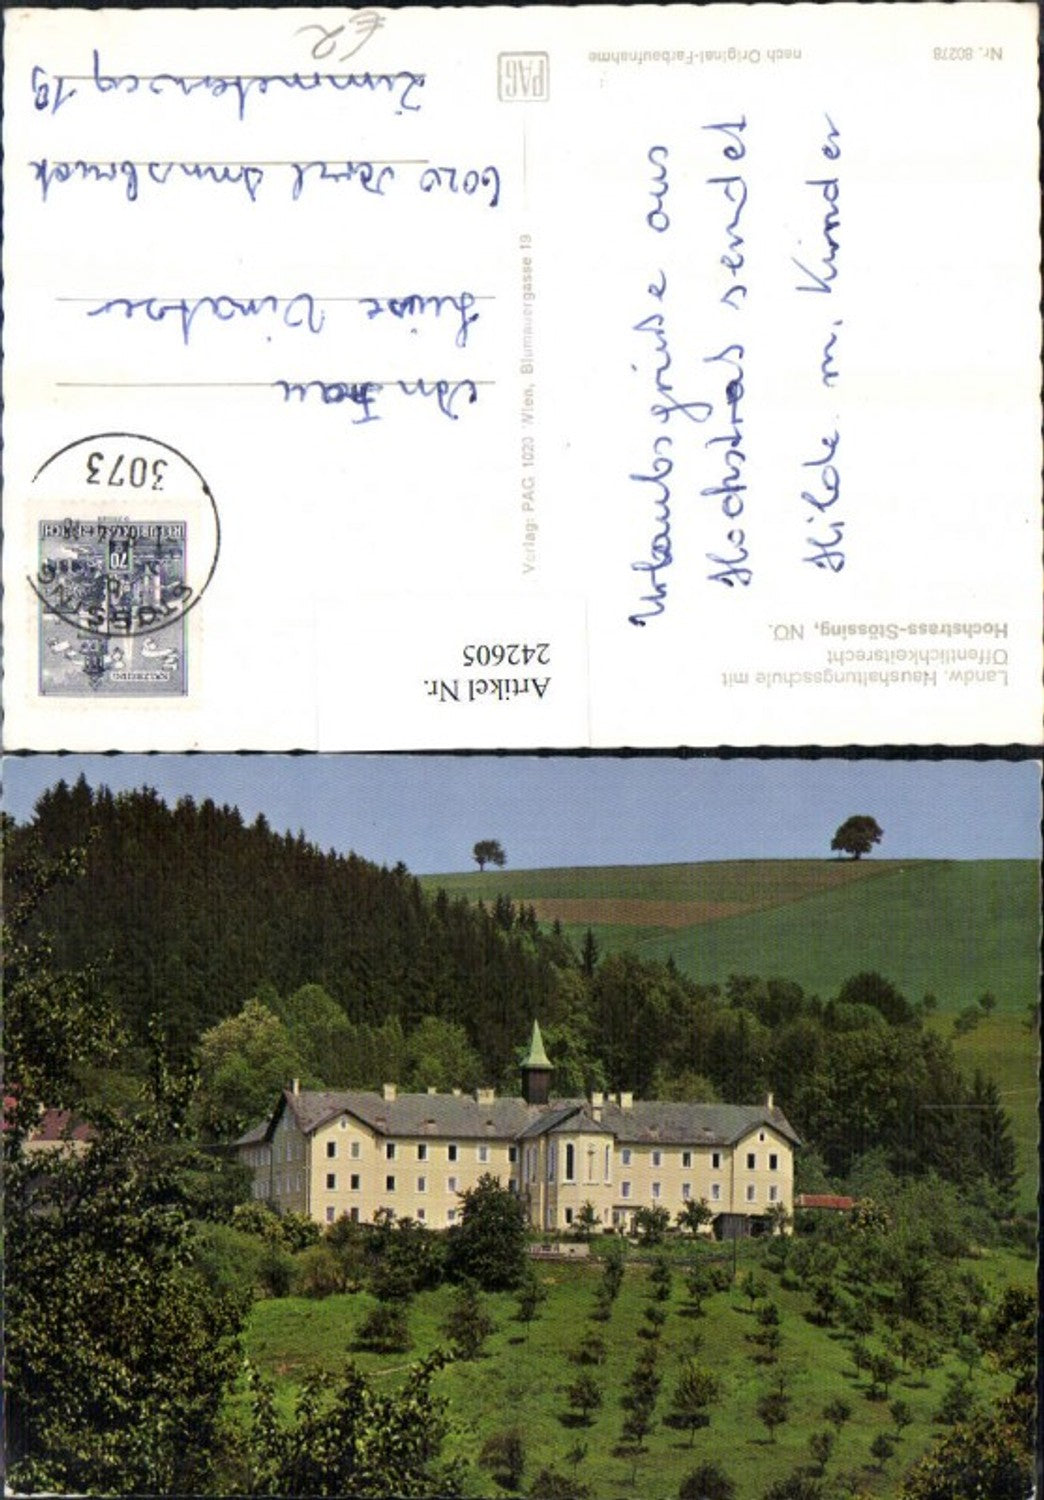 Landw. Haushaltungsschule mit
Öffentlichkeitsrecht
Hochstrass-Stössing, NÖ.
Urlaubsgrüße aus
Hochstraß sendet
Hilde m. Kinder
Nr. 80278
nach Original-Farbaufnahme
PAG
Verlag: PAG 1020 Wien, Blumauergasse 19
Artikel Nr.
242605
3073
70
SALZBURG
An Frau
Luise Vinatzer
6020 Innsbruck
19
€2